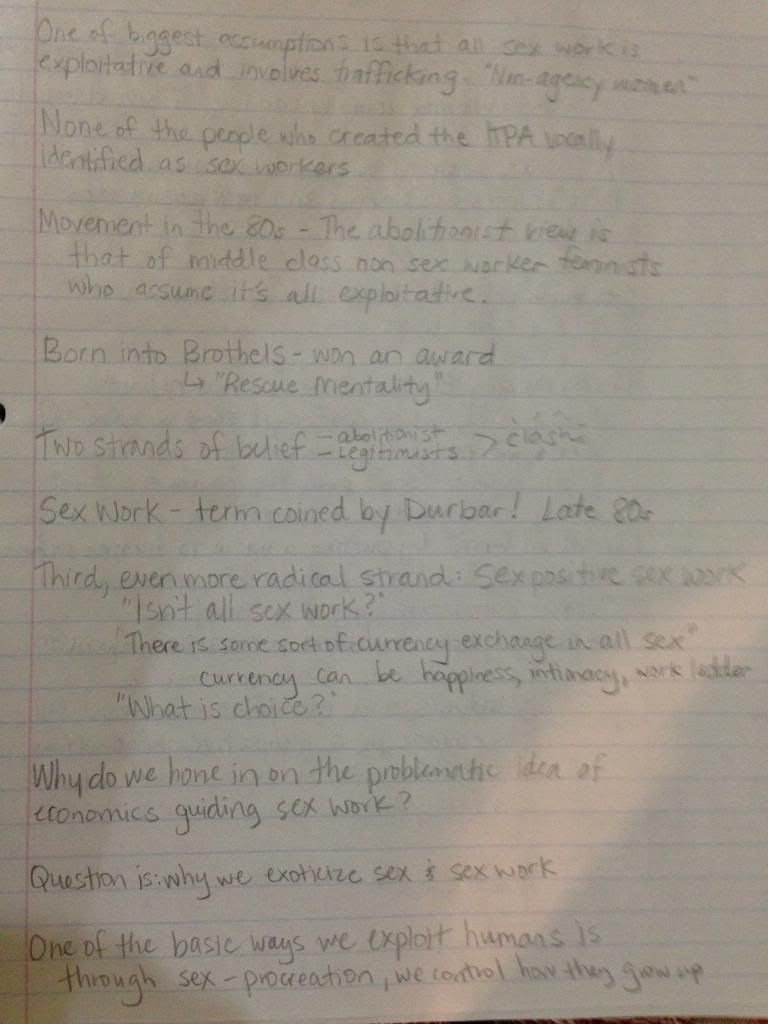 One of biggest assumptions is that all sex work is
exploitative and involves trafficking. "Non-agency women"
None of the people who created the ITPA vocally
identified as sex workers
Movement in the 80s - The abolitionist view is
that of middle class non sex worker feminists
who assume it's all exploitative.
Born into Brothels - won an award
↳ "Rescue mentality"
Two strands of belief - abolitionist > clash
- Legitimists
Sex Work - term coined by Durbar! Late 80s
Third, even more radical strand: Sex positive sex work
"Isn't all sex work?"
"There is some sort of currency exchange in all sex"
currency can be happiness, intimacy, work ladder
"What is choice?"
Why do we hone in on the problematic idea of
economics guiding sex work?
Question is: why we exoticize sex & sex work
One of the basic ways we exploit humans is
through sex - procreation, we control how they grow up